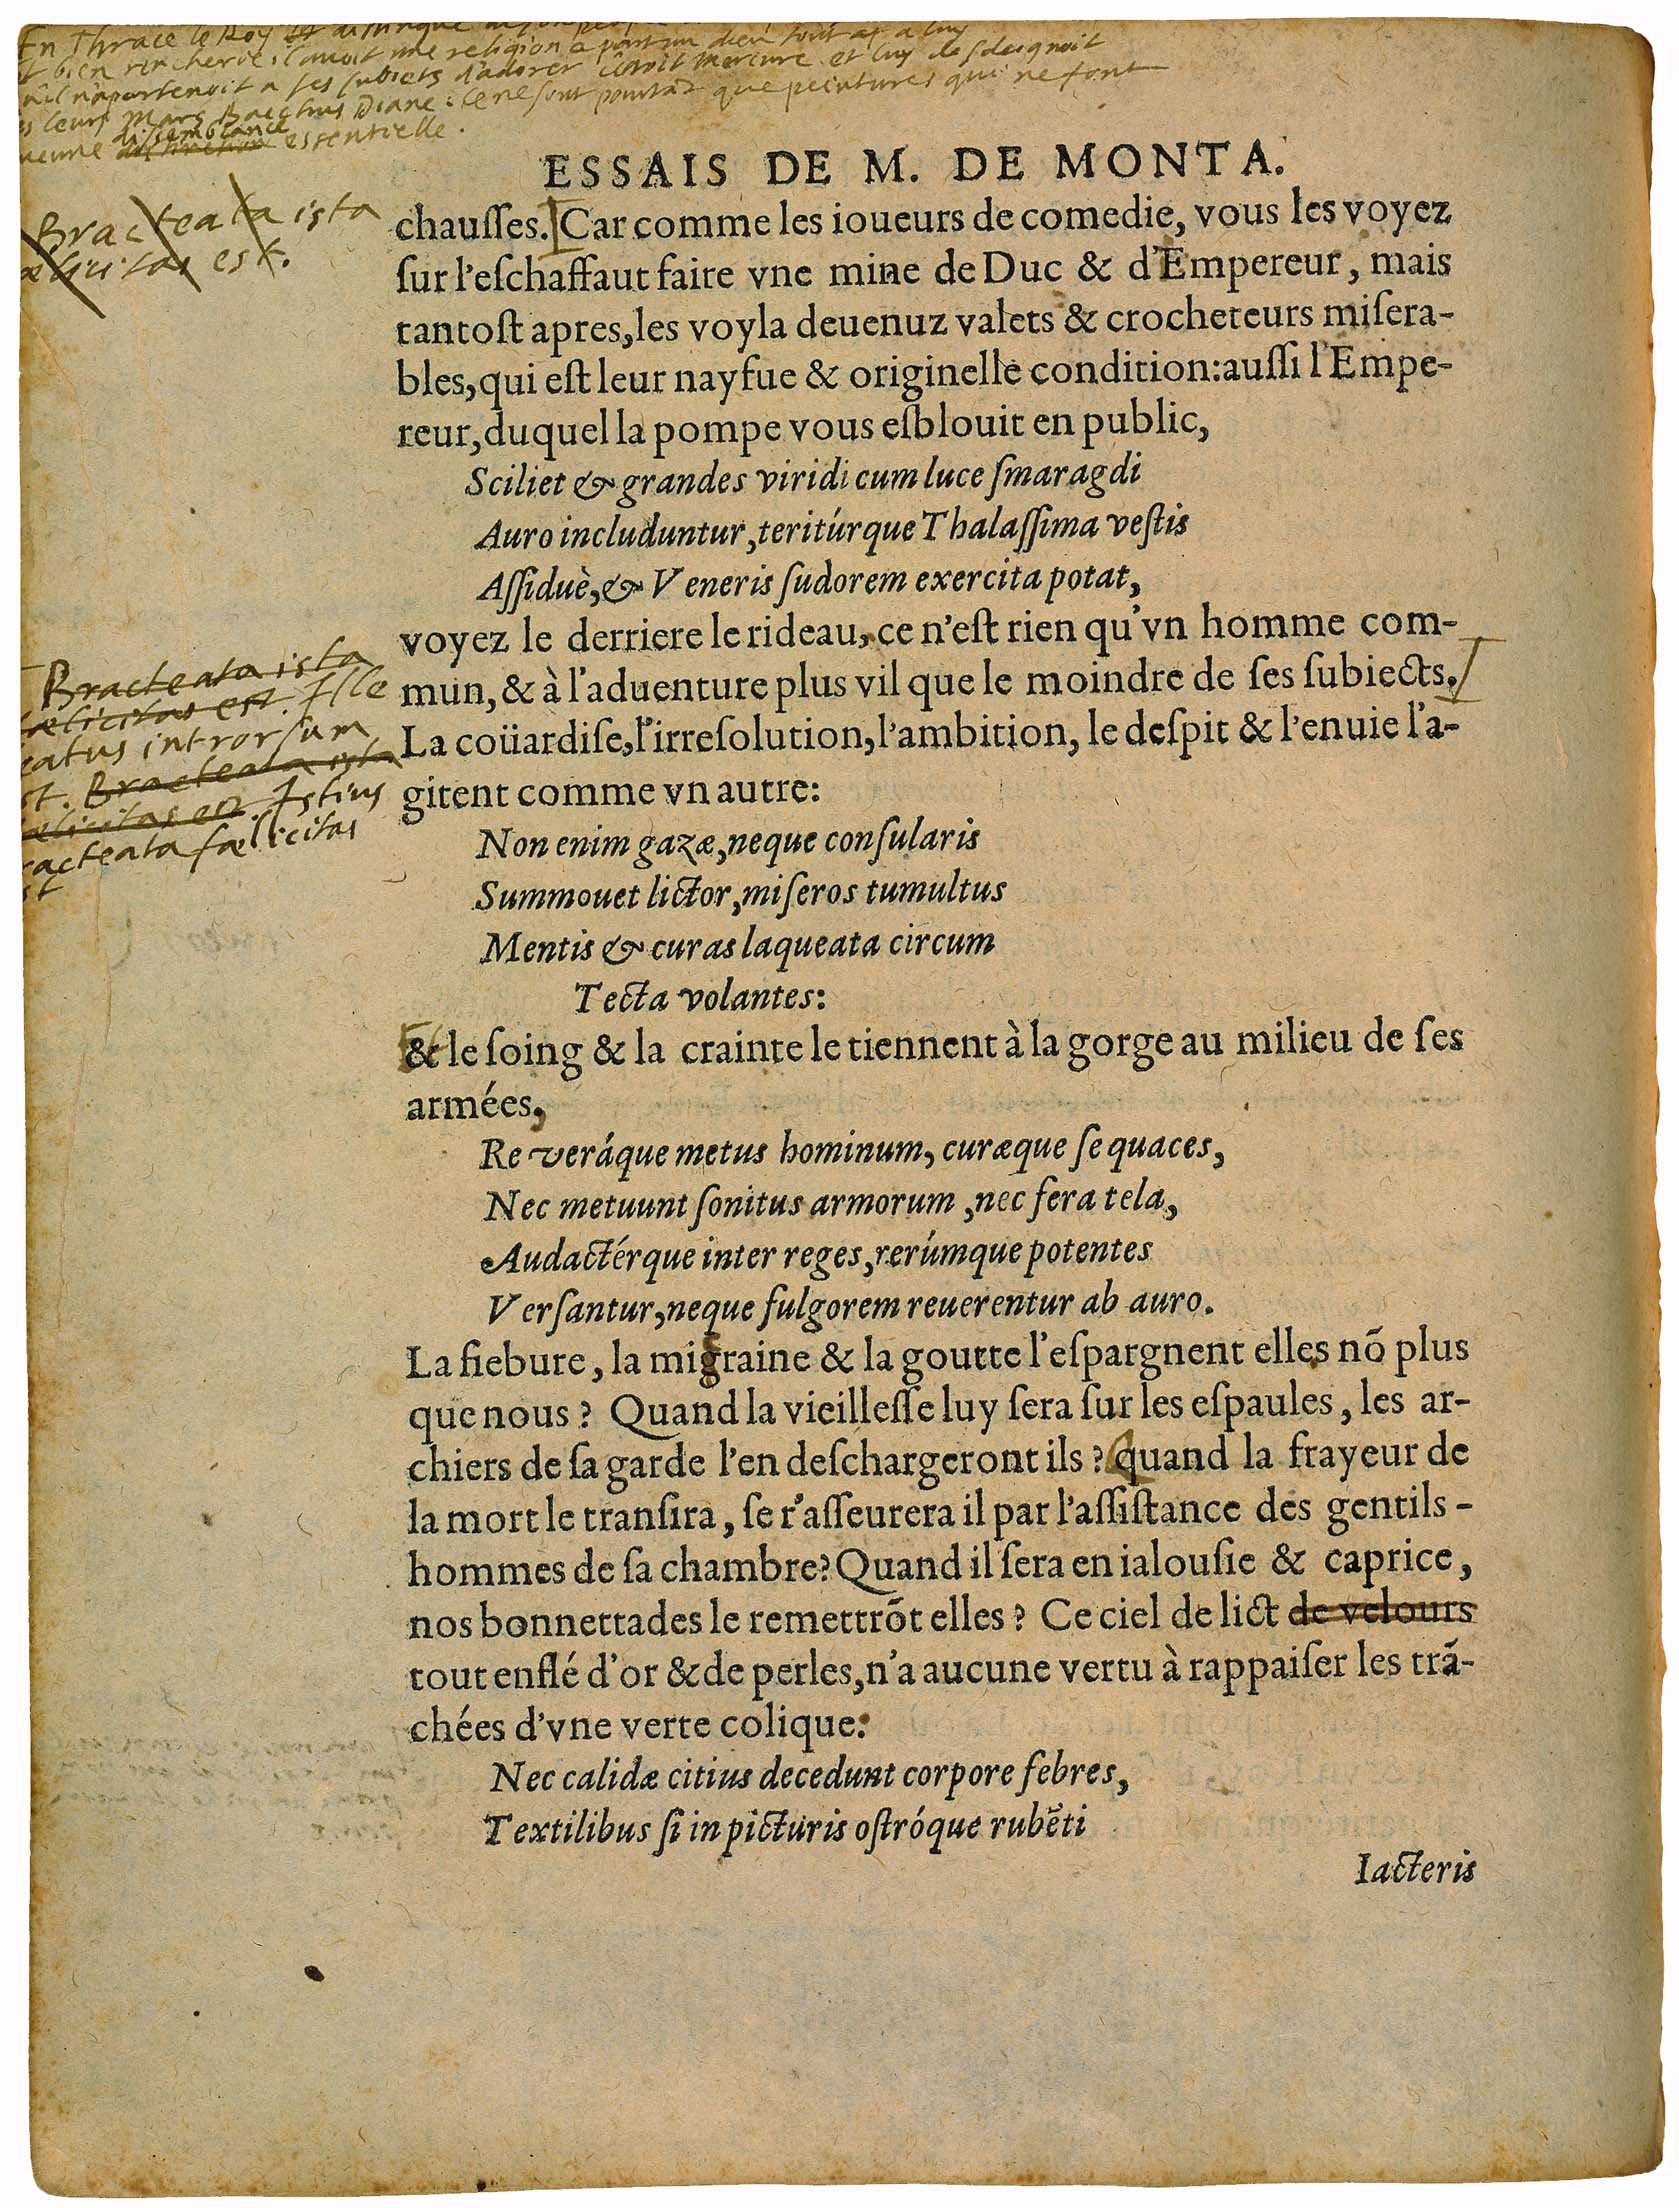 En Thrace le Roy
bien rencherie: il avoit une religion a part un dieu tout a luy
qu'il n'apartenoit a ses subiets d'adorer c'estoit Mercure et luy desdeignoit
les leurs Mars Bacchus Diane: ce ne sont pourtāt que peintures qui ne font
aucune dissemblance essentielle.
ESSAIS DE M. DE MONTA.
Bracteata ista
fælicitas est.
chauſſes. Car comme les ioueurs de comedie, vous les voyez
ſur l'eſchaffaut faire vne mine de Duc & d'Empereur, mais
tantoſt apres, les voyla deuenuz valets & crocheteurs miſera-
bles, qui eſt leur nayfue & originelle condition: auſſi l'Empe-
reur, duquel la pompe vous eſblouit en public,
Sciliet & grandes viridi cum luce ſmaragdi
Auro includuntur, teritúrque Thalaſſima veſtis
Aſſiduè, & Veneris ſudorem exercita potat,
voyez le derriere le rideau, ce n'eſt rien qu'vn homme com-
mun, & à l'aduenture plus vil que le moindre de ſes ſubiects.
La coüardiſe, l'irreſolution, l'ambition, le deſpit & l'enuie l'a-
gitent comme vn autre:
Bracteata ista
fælicitas est. Ille
beatus introrsum
est. Bracteata ista
fælicitas est Istius
bracteata fælicitas
est
Non enim gazæ, neque conſularis
Summouet lictor, miſeros tumultus
Mentis & curas laqueata circum
Tecta volantes:
& le ſoing & la crainte le tiennent à la gorge au milieu de ſes
armées,
Re veráque metus hominum, curæque ſequaces,
Nec metuunt ſonitus armorum, nec fera tela,
Audactérque inter reges, rerúmque potentes
Verſantur, neque fulgorem reuerentur ab auro.
La fiebure, la migraine & la goutte l'eſpargnent elles nō plus
que nous? Quand la vieilleſſe luy ſera ſur les eſpaules, les ar-
chiers de ſa garde l'en deſchargeront ils? quand la frayeur de
la mort le tranſira, ſe r'aſſeurera il par l'aſſiſtance des gentils-
hommes de ſa chambre? Quand il ſera en ialouſie & caprice,
nos bonnettades le remettrōt elles? Ce ciel de lict de velours
tout enflé d'or & de perles, n'a aucune vertu à rappaiſer les trā-
chées d'vne verte colique:
Nec calidæ citius decedunt corpore febres,
Textilibus ſi in picturis oſtróque rubēti
Iacteris